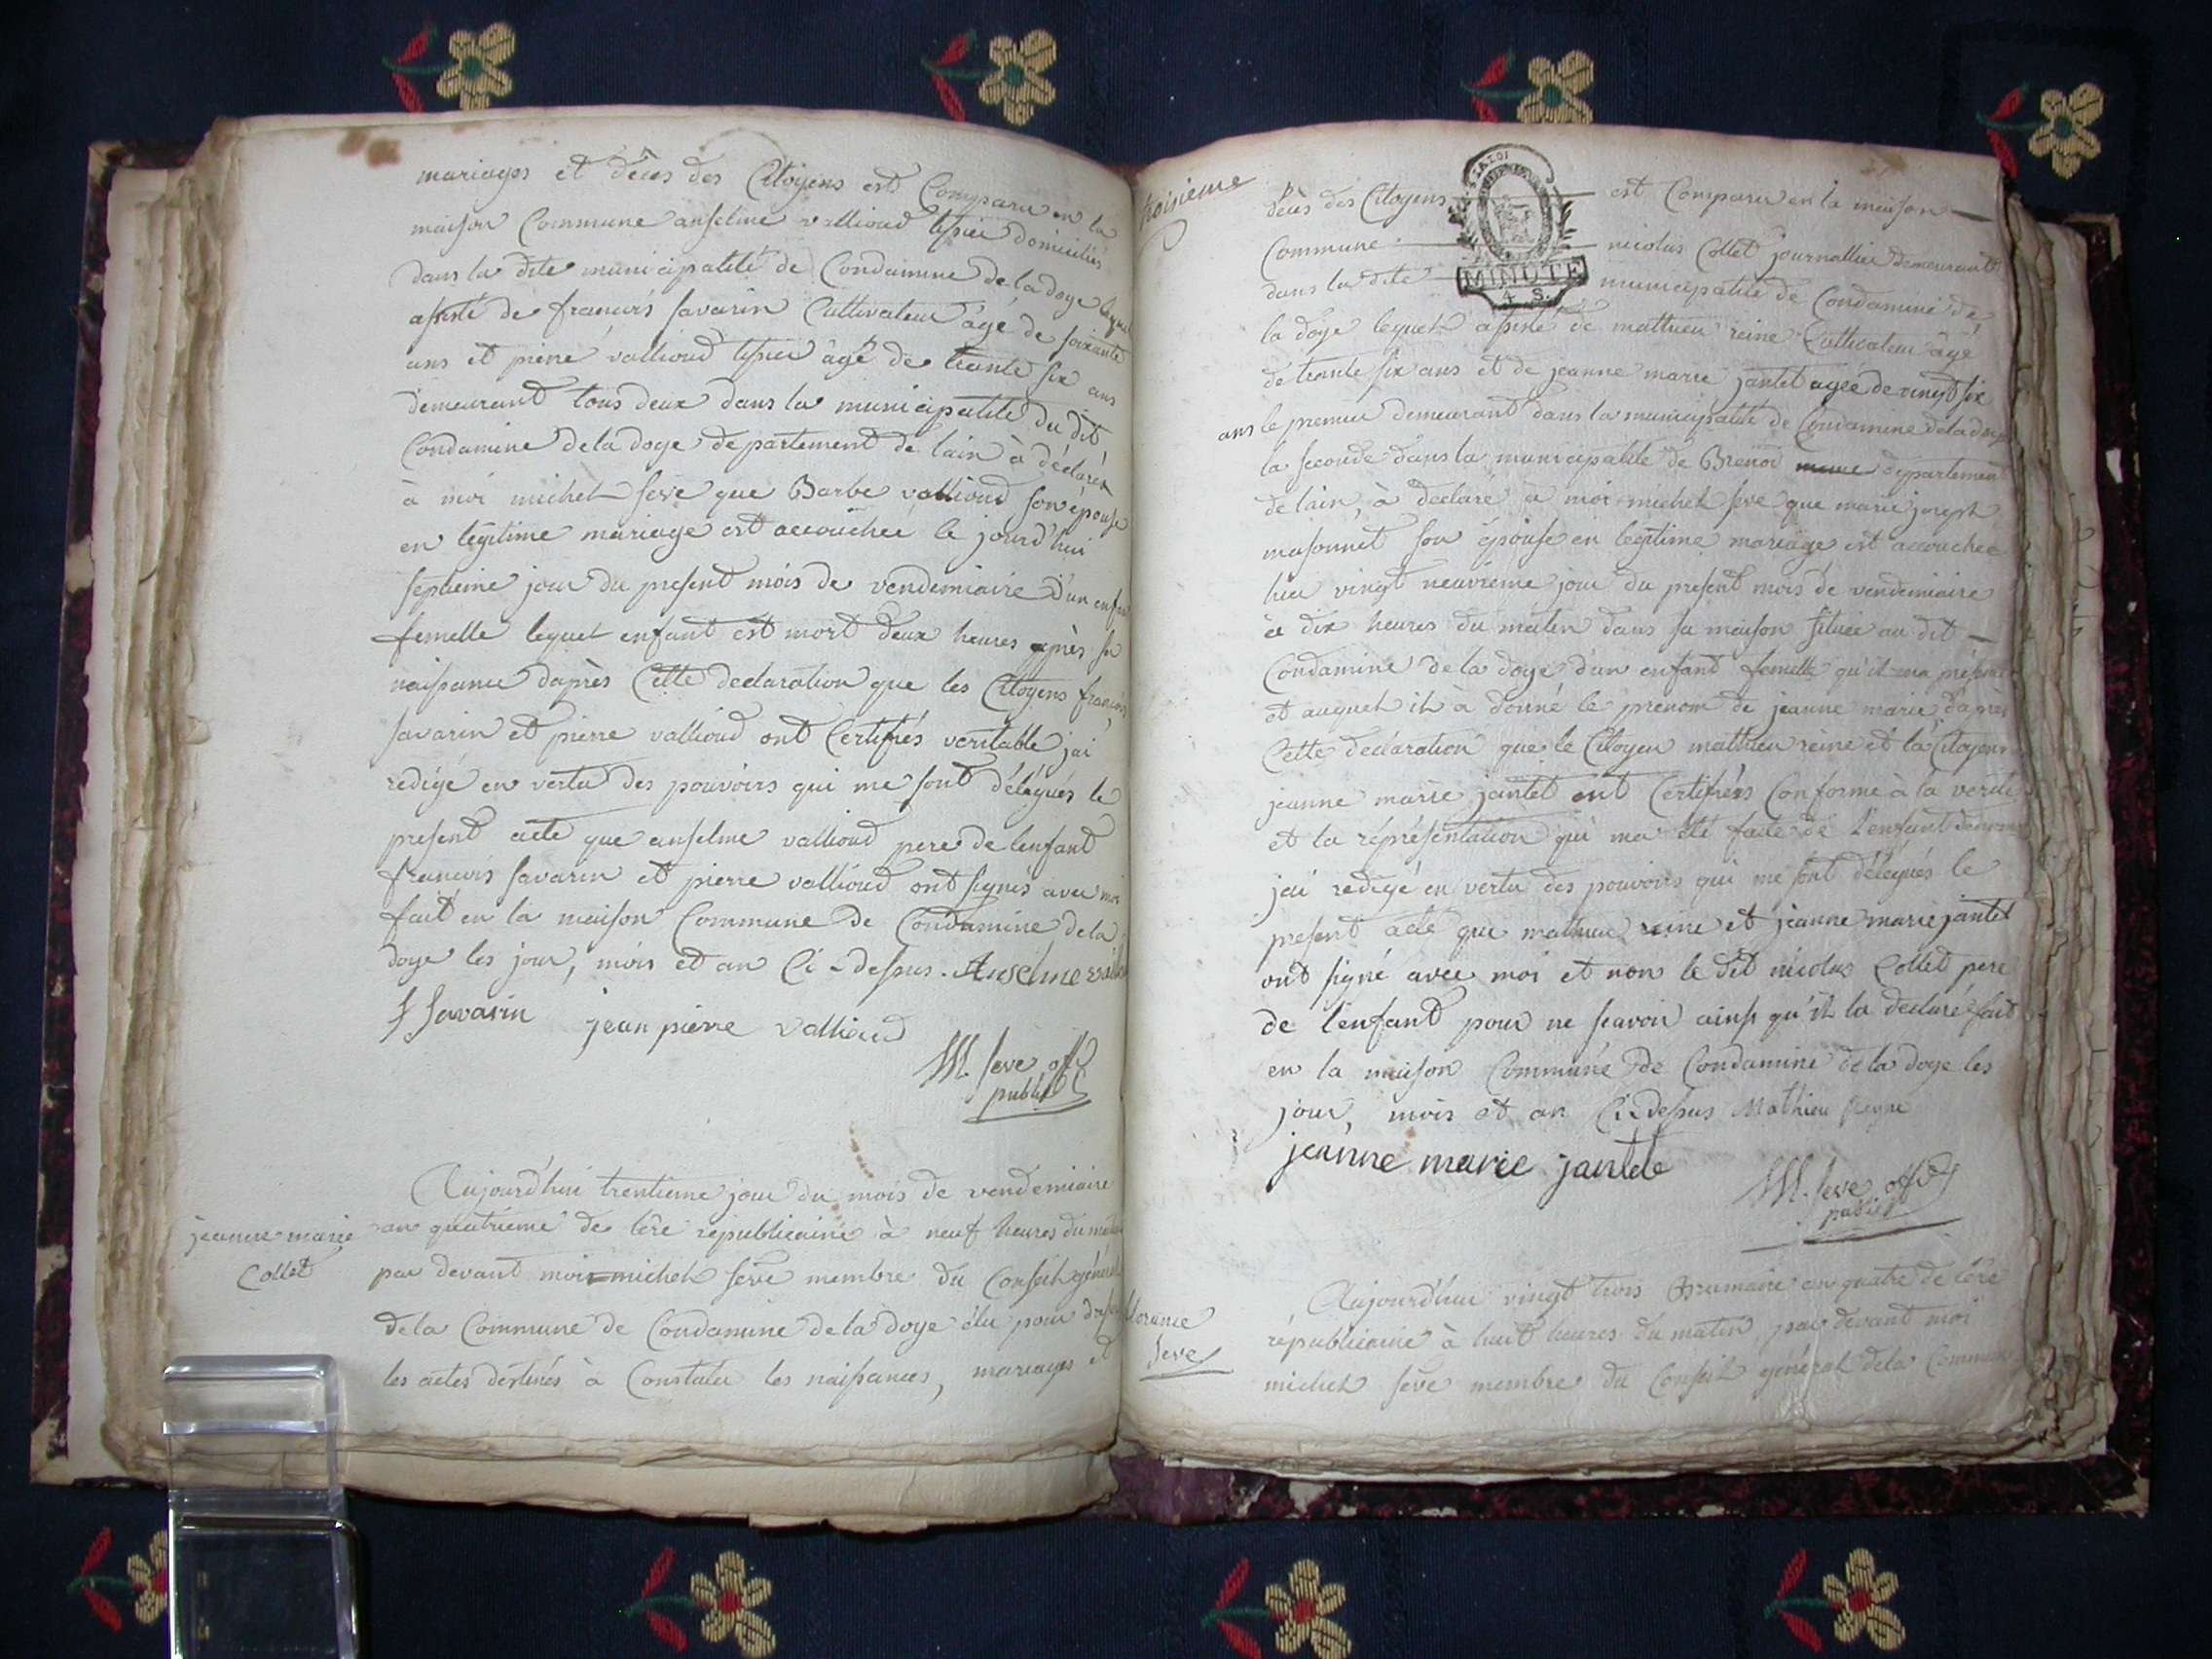 mariages et décès des Citoyens est Comparu en la
maison Commune anselme vallioud tissier domicilié
dans la dite municipalité de Condamine de la doye lequel
assisté de francois savarin Cultivateur âgé de soixante
ans et pierre vallioud tissier âgé de trente six ans
demeurant tous deux dans la municipalité du dit
Condamine de la doye departement de lain à déclaré
à moi michel seve que Barbe vallioud son épouse
en légitime mariage est accouchée le jourd'hui
septieme jour du present mois de vendemiaire d'un enfant
femelle lequel enfant est mort deux heures après sa
naissance d'après Cette declaration que les Citoyens francois
savarin et pierre vallioud ont Certifiés veritable jai
redigé en vertu des pouvoirs qui me sont délégués le
present acte que anselme vallioud pere de lenfant
francois savarin et pierre vallioud ont signés avec moi
fait en la maison Commune de Condamine de la
doye les jour, mois et an Ci-dessus. Anselme
f savarin jean pierre vallioud
M. seve off
public
jeanne marie
Collet
Aujourd'hui trentieme jour du mois de vendemiaire
an quatrieme de lère républicaine à neuf heures du matin
par devant moi michel seve membre du Conseil général
de la Commune de Condamine de la doye élu pour
les actes destinés à Constater les naissances, mariages et
troisieme
décès des Citoyens est Comparu en la maison
Commune nicolas Collet journallier demeurant
MINUTE
4 S.
dans la dite municipalité de Condamine de
la doye lequel assisté de mathieu reine Cultivateur âgé
de trente six ans et de jeanne marie jantet agée de vingt six
ans le premier demeurant dans la municipalité de Condamine de la doye
la seconde dans la municipalité de Brenod meme departement
de lain, à déclaré à moi michel seve que marie joseph
maisonnet son épouse en legitime mariage est accouchée
hier vingt neuvieme jour du present mois de vendemiaire
à dix heures du matin dans sa maison située au dit
Condamine de la doye d'un enfant femelle qu'il ma présenté
et auquel il à donné le prenom de jeanne marie, d'après
Cette declaration que le Citoyen mathieu reine et la Citoyenne
jeanne marie jantet ont Certifiés Conforme à la verité
et la réprésentation qui ma été faite de l'enfant
jai redigé en vertu des pouvoirs qui me sont délégués le
present acte que mathieu reine et jeanne marie jantet
ont signé avec moi et non le dit nicolas Collet pere
de l'enfant pour ne scavoir ainsi qu'il la declaré fait
en la maison Commune de Condamine de la doye les
jour, mois et an Ci-dessus Mathieu Reyne
jeanne marie jantet
M. seve off
public
Seve
Aujourd'hui vingt trois Brumaire an quatre de lère
républicaine à huit heures du matin, par devant moi
michel seve membre du Conseil général de la Commune